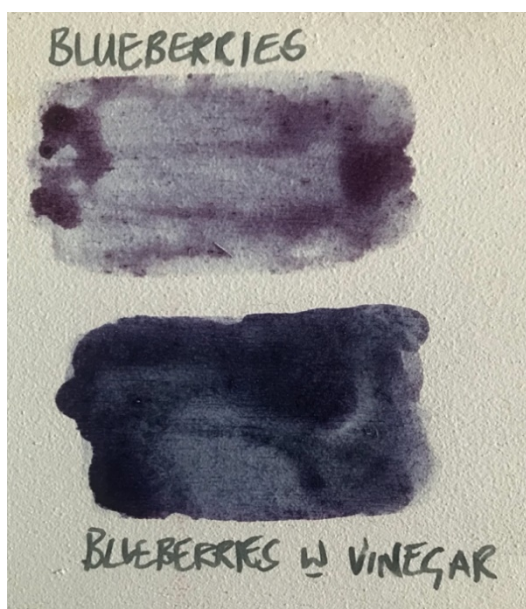 BLUEBERRIES
BLUEBERRIES W VINEGAR